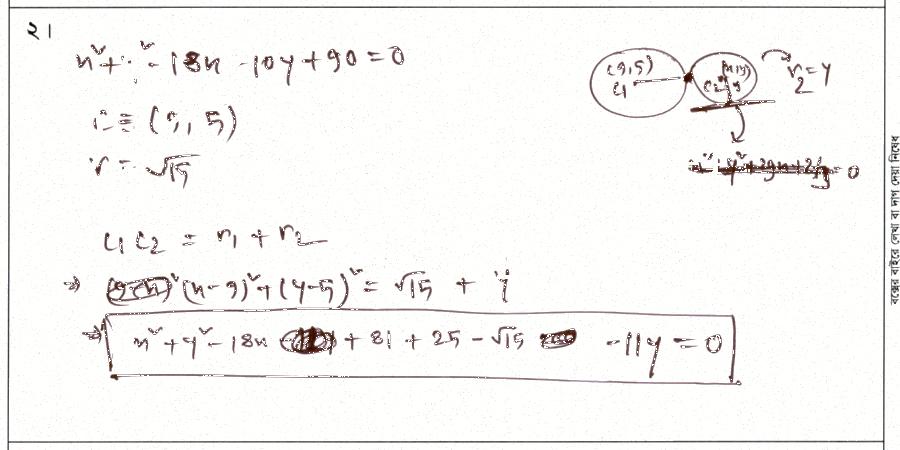 ২।
x² + y² - 18x - 10y + 90 = 0
C ≡ (9, 5)
r = √15
C₁C₂ = r₁ + r₂
⇒ (x-9)² + (y-5)² = √15 + y
⇒ x² + y² - 18x + 81 + 25 - √15 - 11y = 0
(9,5)
C₁
(x,y)
C₂ y
r₂ = y
= 0
বক্সের বাইরে লেখা বা দাগ দেয়া নিষেধ